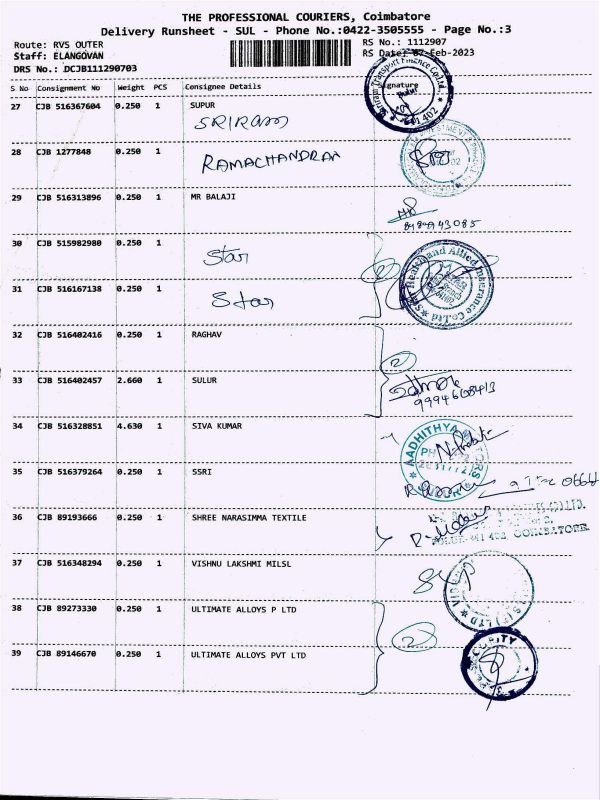 THE PROFESSIONAL COURIERS, Coimbatore
Delivery Runsheet - SUL - Phone No.:0422-3505555 - Page No.:3
Route: RVS OUTER
RS No.: 1112907
Staff: ELANGOVAN
RS Date: 07-Feb-2023
DRS No.: DCJB111290703
S No Consignment No Weight PCS Consignee Details Signature
27 CJB 516367604 0.250 1 SUPUR
SRIRAM
28 CJB 1277848 0.250 1 RAMACHANDRAN
29 CJB 516313896 0.250 1 MR BALAJI
30 CJB 515982980 0.250 1
Star
31 CJB 516167138 0.250 1
Star
Star Health and Allied Insurance Co.Ltd
32 CJB 516402416 0.250 1 RAGHAV
2
33 CJB 516402457 2.660 1 SULUR
9994608413
34 CJB 516328851 4.630 1 SIVA KUMAR
AADHITHYA
35 CJB 516379264 0.250 1 SSRI
36 CJB 89193666 0.250 1 SHREE NARASIMMA TEXTILE
COIMBATORE
37 CJB 516348294 0.250 1 VISHNU LAKSHMI MILSL
38 CJB 89273330 0.250 1 ULTIMATE ALLOYS P LTD
2
39 CJB 89146670 0.250 1 ULTIMATE ALLOYS PVT LTD